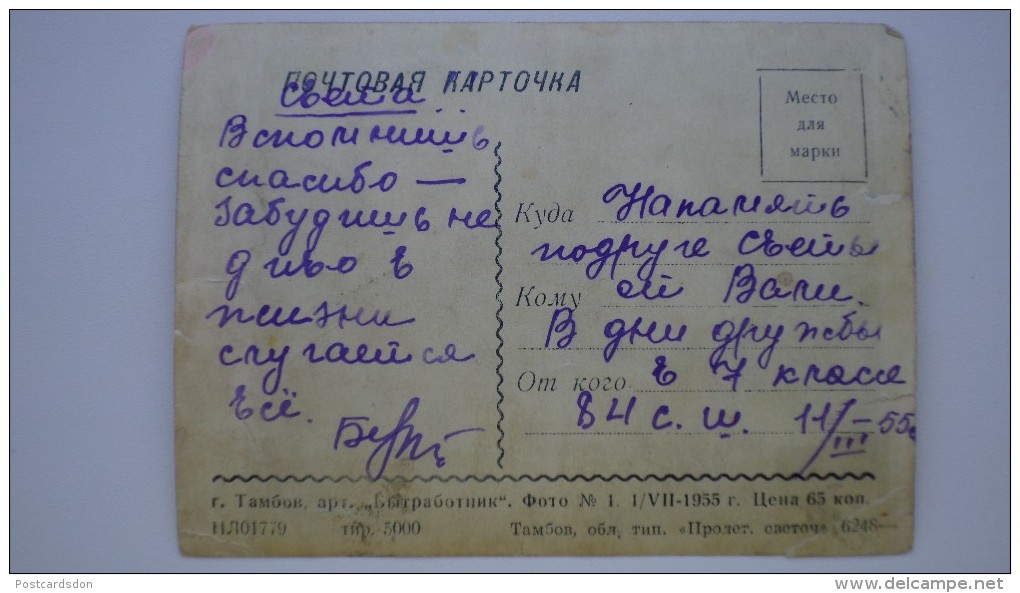 ПОЧТОВАЯ КАРТОЧКА
Света...
Вспомнишь
спасибо —
Забудишь не
диво в
жизни
случается
всё.
Место
для
марки
Куда Напамять
подруге Светы
Кому от Вали.
В дни дружбы
От кого в 7 классе
84 с. ш. 11/III-55г
г. Тамбов, арт. „Бытработник“. Фото № 1. 1/VII-1955 г. Цена 65 коп.
НЛ01779 тир. 5000 Тамбов, обл. тип. «Пролет. светоч» 6248—
Postcardsdon www.delcampe.net